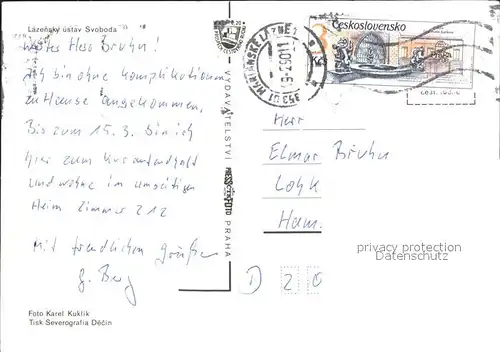 Lázeňský ústav Svoboda
Wertes Herr Bruhn!
Ich bin ohne Komplikationen
zu Hause angekommen.
Bis zum 15.3. bin ich
hier zum Kuraufenthalt
und wohne im umseitigen
Heim Zimmer 212
Mit freundlichen Grüßen
G. Berg
Foto Karel Kuklík
Tisk Severografia Děčín
VYDAVATELSTVÍ
PRESSFOTO
PRAHA
MARIÁNSKÉ LÁZNĚ 1
353 01
3
Kčs
Československo
Herr
Elmar Bruhn
Ham.
privacy protection
Datenschutz
D 20